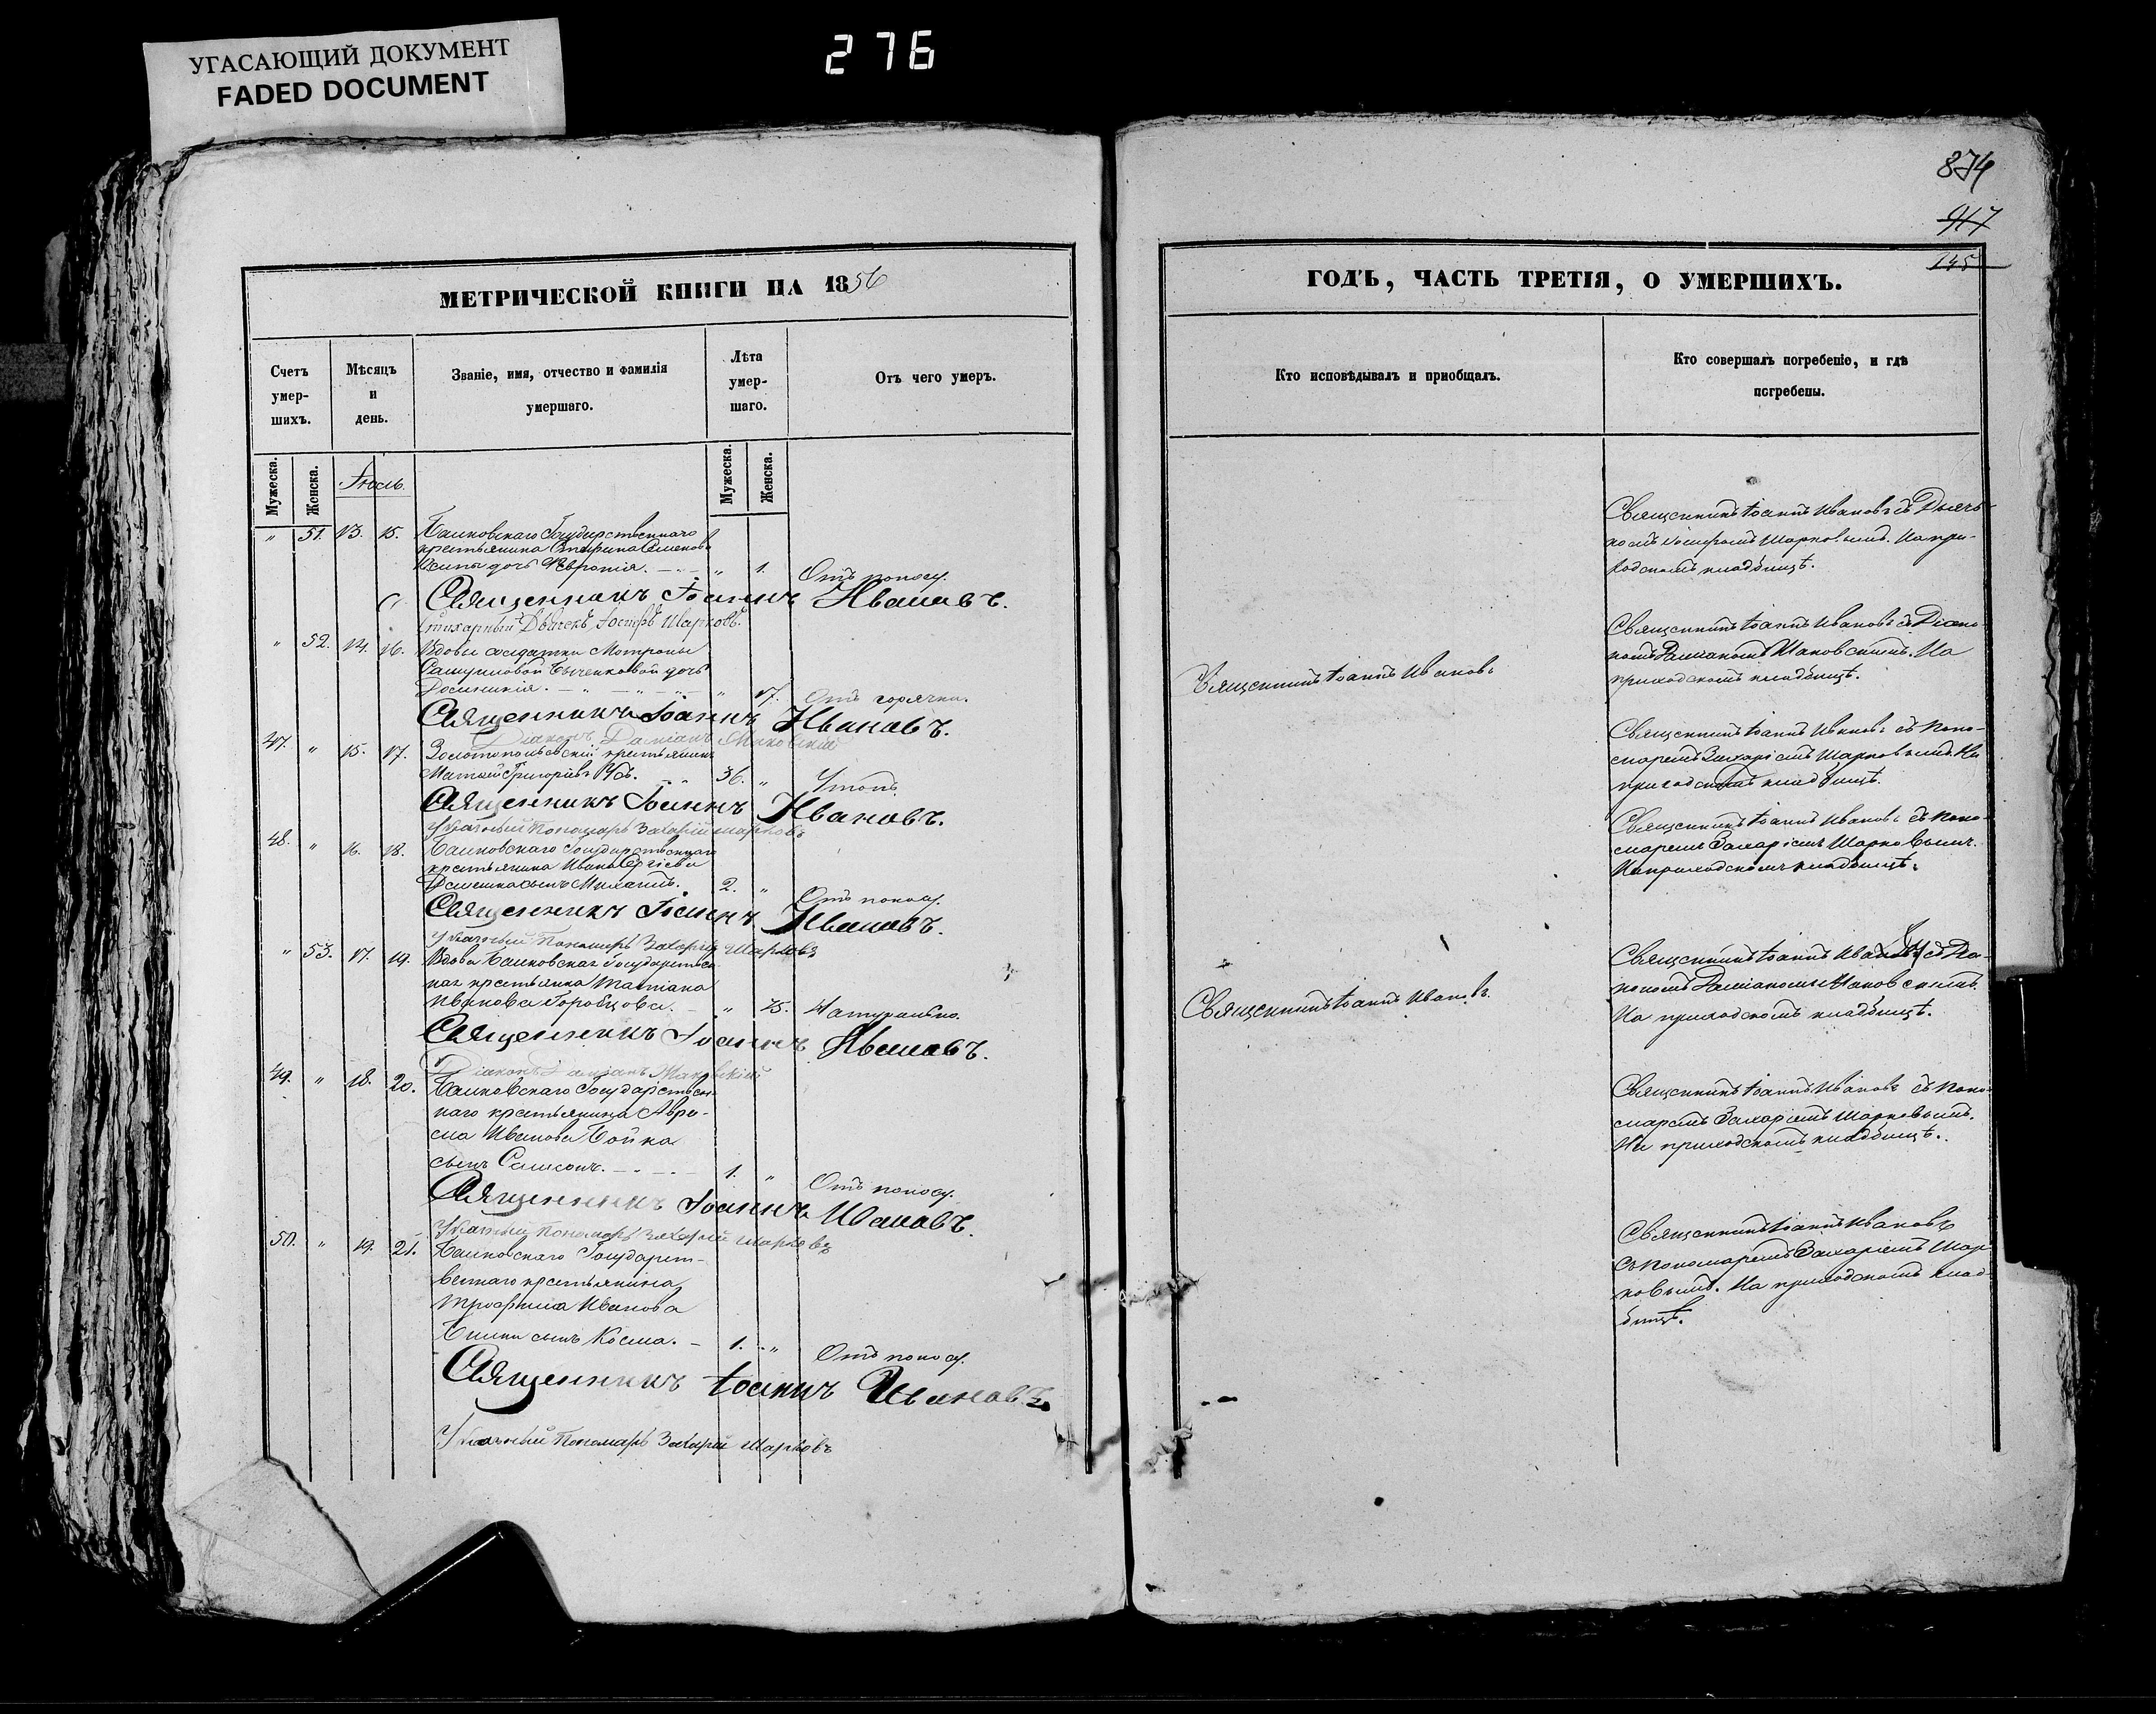 УГАСАЮЩИЙ ДОКУМЕНТ
FADED DOCUMENT
276
874
917
145
МЕТРИЧЕСКОЙ КНИГИ НА 1856
Счетъ умер-шихъ.
Мѣсяцъ и день.
Званіе, имя, отчество и фамилія умершаго.
Лѣта умер-шаго.
Отъ чего умеръ.
Мужеска.
Женска.
Мужеска.
Женска.
Іюль.
" 51. 13. 15. Банковскаго Государственнаго
крестьянина Семенова
дочь Февронія. " 1. Отъ поносу.
Священникъ Іоаннъ Ивановъ.
Стихарный Дьячекъ Іосифъ Шарковъ.
" 52. 14. 16. Вдовы солдатки Мотроны
дочь
" 17. Отъ горячки.
Священникъ Іоаннъ Ивановъ.
Діаконъ Даміанъ Маковскій
47. " 15. 17. Золотопольскій крестьянинъ
Матвей Григорьевъ 36. " Утопъ.
Священникъ Іоаннъ Ивановъ.
Указный Пономарь Захарій Шарковъ
48. " 16. 18. Банковскаго Государственнаго
крестьянина Ивана Сергіева
сынъ Михаилъ. 2. " Отъ поносу.
Священникъ Іоаннъ Ивановъ.
Указный Пономарь Захарій Шарковъ
" 53. 17. 19. Вдова Банковская Государствен-
ная крестьянка Татіана
Иванова Горобцова. " 75. Натурально.
Священникъ Іоаннъ Ивановъ.
Діаконъ Даміанъ Маковскій
49. " 18. 20. Банковскаго Государствен-
наго крестьянина Авра-
ма Иванова Бойка
сынъ Самсонъ. 1. " Отъ поносу.
Священникъ Іоаннъ Ивановъ.
Указный Пономарь Захарій Шарковъ
50. " 19. 21. Банковскаго Государст-
веннаго крестьянина
Трофима Иванова
сынъ Косма. 1. " Отъ поносу.
Священникъ Іоаннъ Ивановъ.
Указный Пономарь Захарій Шарковъ
ГОДЪ, ЧАСТЬ ТРЕТІЯ, О УМЕРШИХЪ.
Кто исповѣдывалъ и приобщалъ.
Кто совершалъ погребеніе, и гдѣ
погребены.
Священникъ Іоаннъ Ивановъ съ Дьяч-
комъ Іосифомъ Шарковымъ. На при-
ходскомъ кладбищѣ.
Священникъ Іоаннъ Ивановъ
Священникъ Іоаннъ Ивановъ съ Діако-
номъ Даміаномъ Маковскимъ. На
приходскомъ кладбищѣ.
Священникъ Іоаннъ Ивановъ съ Поно-
маремъ Захаріемъ Шарковымъ. На
приходскомъ кладбищѣ.
Священникъ Іоаннъ Ивановъ съ Поно-
маремъ Захаріемъ Шарковымъ.
На приходскомъ кладбищѣ.
Священникъ Іоаннъ Ивановъ.
Священникъ Іоаннъ Ивановъ съ Діа-
кономъ Даміаномъ Маковскимъ.
На приходскомъ кладбищѣ.
Священникъ Іоаннъ Ивановъ съ Поно-
маремъ Захаріемъ Шарковымъ.
На приходскомъ кладбищѣ.
Священникъ Іоаннъ Ивановъ
съ Пономаремъ Захаріемъ Шар-
ковымъ. На приходскомъ клад-
бищѣ.